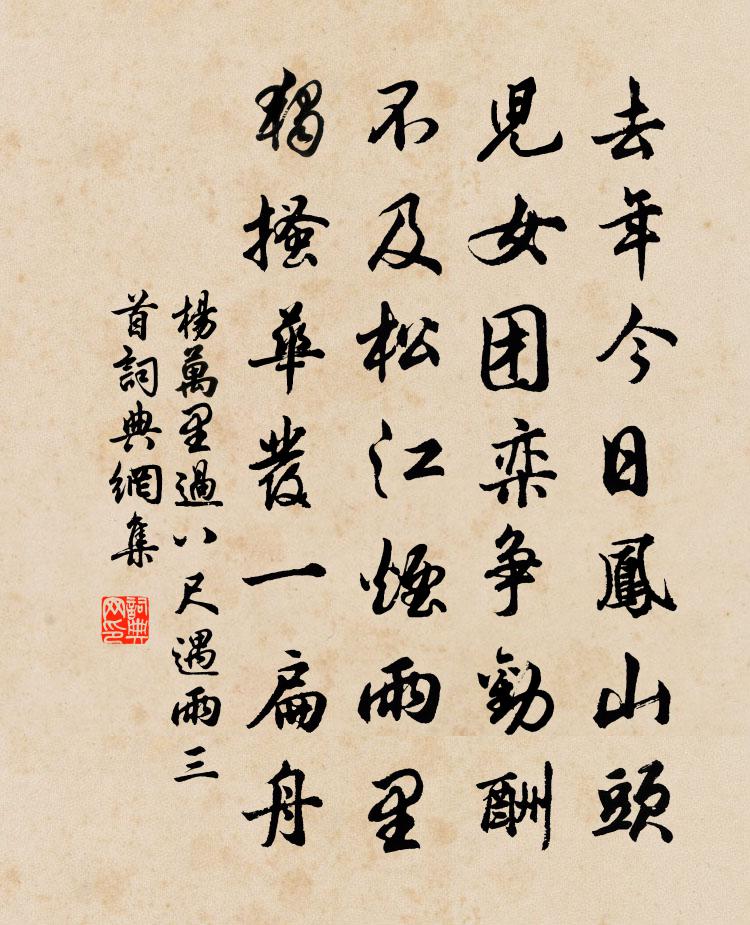 去年今日鳳山頭
兒女团栾争勸酬
不及松江煙雨里
獨搔華發一扁舟
楊萬里過八尺遇雨三
首詞典網集
詞典
网印